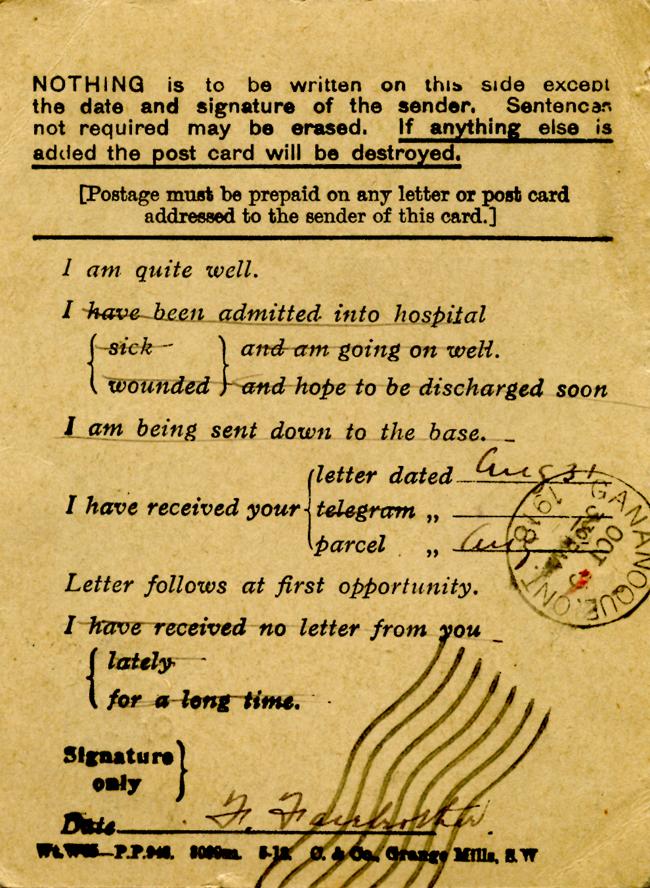 NOTHING is to be written on this side except
the date and signature of the sender. Sentences
not required may be erased. If anything else is
added the post card will be destroyed.
[Postage must be prepaid on any letter or post card
addressed to the sender of this card.]
I am quite well.
I have been admitted into hospital
sick and am going on well.
wounded and hope to be discharged soon
I am being sent down to the base.
letter dated Aug 31
I have received your telegram „
parcel „ Aug
GANANOQUE, ONT.
OCT
1918
Letter follows at first opportunity.
I have received no letter from you
lately
for a long time.
Signature
only
F. Fairbrother
Date
P.P.946. C. & Co., Grange Mills, S.W